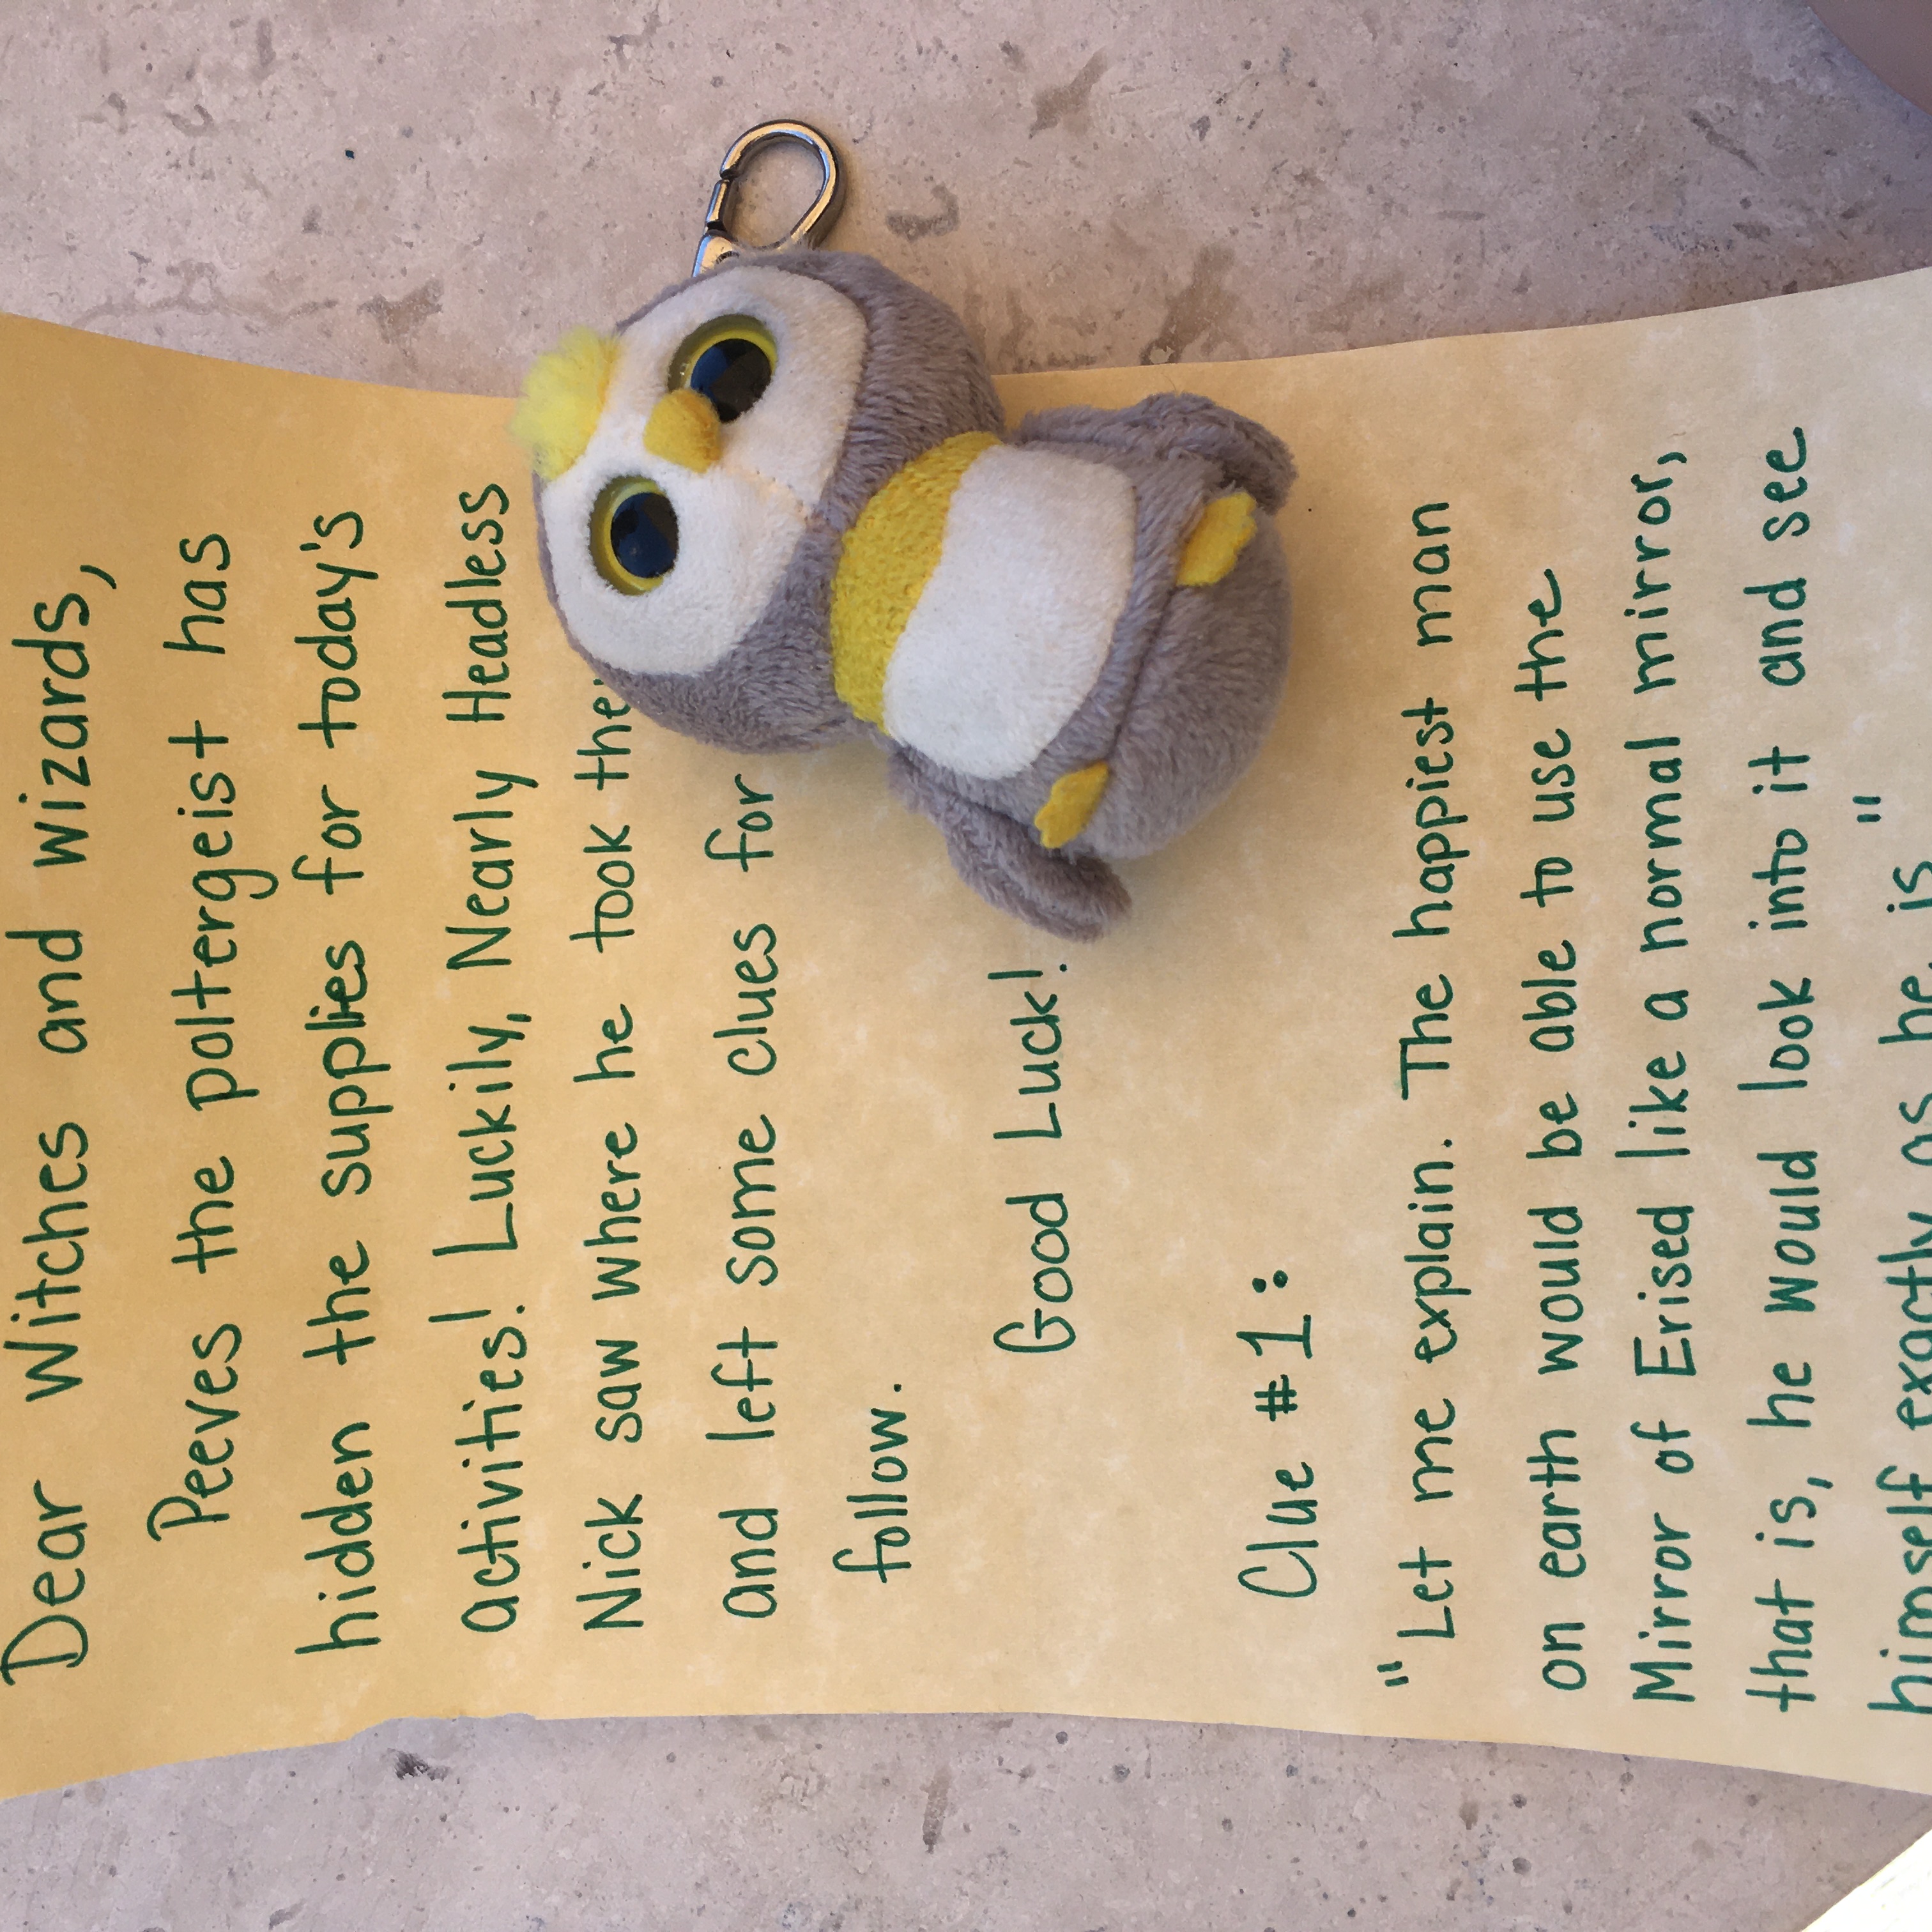 Dear Witches and wizards,
Peeves the poltergeist has
hidden the supplies for today's
activities! Luckily, Nearly Headless
Nick saw where he took
and left some clues for
follow.
Good Luck!
Clue #1:
"Let me explain. The happiest man
on earth would be able to use the
Mirror of Erised like a normal mirror,
that is, he would look into it and see
himself exactly as he is"